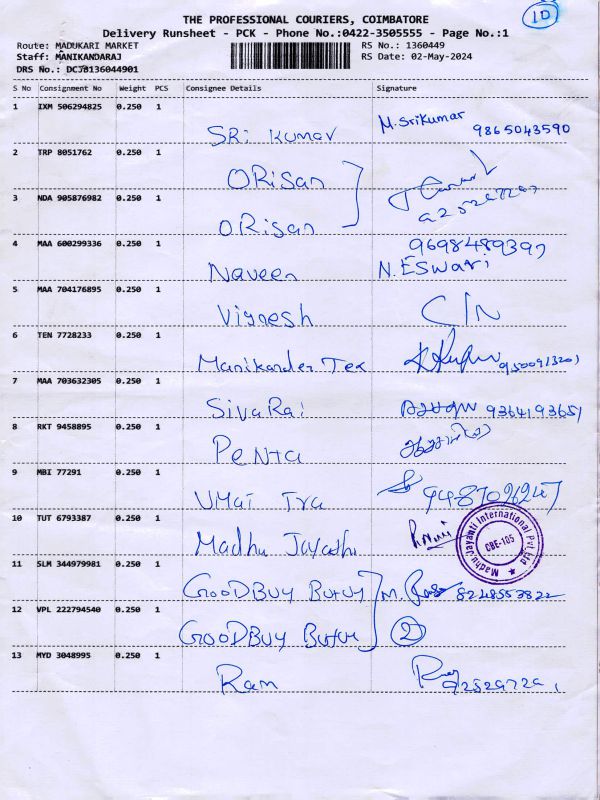 1D
THE PROFESSIONAL COURIERS, COIMBATORE
Delivery Runsheet - PCK - Phone No.:0422-3505555 - Page No.:1
Route: MADUKARI MARKET RS No.: 1360449
Staff: MANIKANDARAJ RS Date: 02-May-2024
DRS No.: DCJB136044901
S No Consignment No Weight PCS Consignee Details Signature
1 IXM 506294825 0.250 1 SRi Kumar M. Srikumar 9865043590
2 TRP 8051762 0.250 1 ORiSan
3 NDA 905876982 0.250 1 ORiSan
4 MAA 600299336 0.250 1 Naveen 9698489397 N. ESwari
5 MAA 704176895 0.250 1 Vignesh C/N
6 TEN 7728233 0.250 1 Manikander Tex
7 MAA 703632305 0.250 1 SivaRaj 9364193651
8 RKT 9458895 0.250 1 PeNTa
9 MBI 77291 0.250 1 UMai
10 TUT 6793387 0.250 1 Madhu Jayanthi
Madhu Jayanti International Pvt Ltd
CBE-105
11 SLM 344979981 0.250 1 GOODBUY M. 8248553822
12 VPL 222794540 0.250 1 GOODBUY 2
13 MYD 3048995 0.250 1 Ram